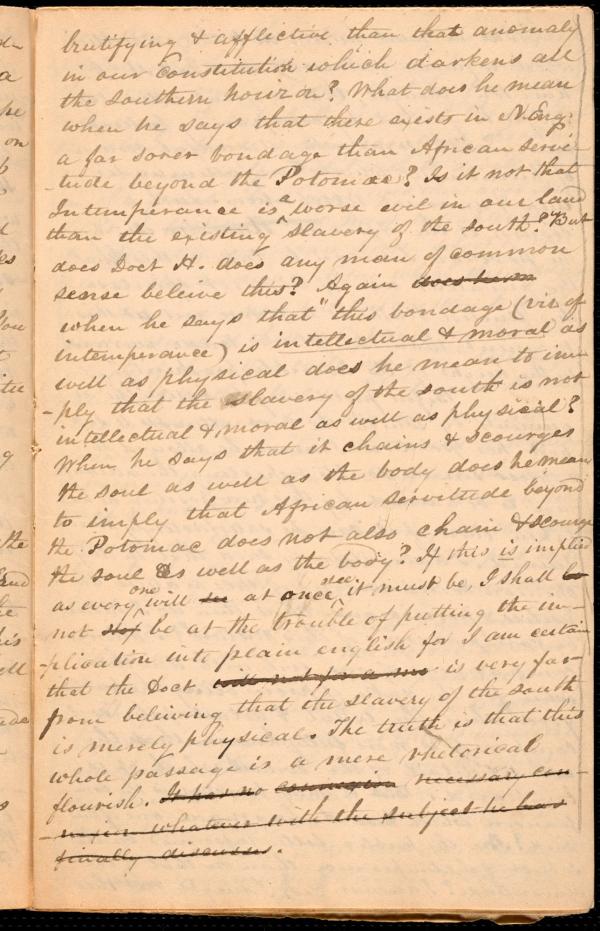 brutifying & afflictive than that anomaly
in our constitution which darkens all
the southern horizon? What does he mean
when he says that there exists in N. Eng.
a far sorer bondage than African servi-
tude beyond the Potomac? Is it not that
Intemperance is a worse evil in our land
than the existing slavery of the south? But
does Doct H. does any man of common
sense beleive this? Again does he m
when he says that "this bondage (viz of
intemperance) is intellectual & moral as
well as physical does he mean to im
-ply that the slavery of the south is not
intellectual & moral as well as physical?
When he says that it chains & scourges
the soul as well as the body does he mean
to imply that African servitude beyond
the Potomac does not also chain & scourge
the soul as well as the body? If this is implied
as every one will see at once it must be, I shall
not be at the trouble of putting the im-
-plication into plain english for I am certain
that the Doct will not for a mo is very far
from beleiving that the slavery of the south
is merely physical. The truth is that this
whole passage is a mere rhetorical
flourish. It has no connexion necessary con-
nexion whatever with the subject he has
finally discusses.